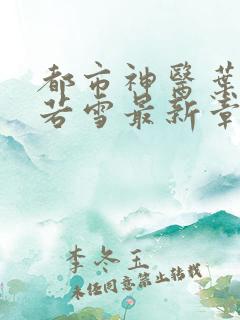 都市神醫葉
若雪最新章
李冬玉
未经同意禁止转载